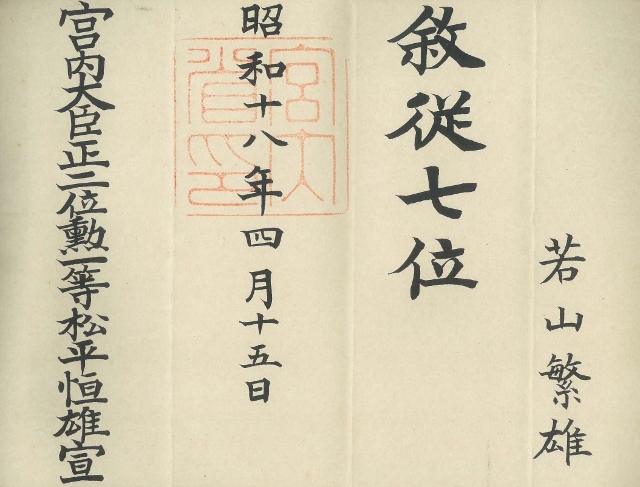 若山繁雄
敘從七位
昭和十八年四月十五日
宮内省印
宮内大臣正二位勲一等松平恒雄宣